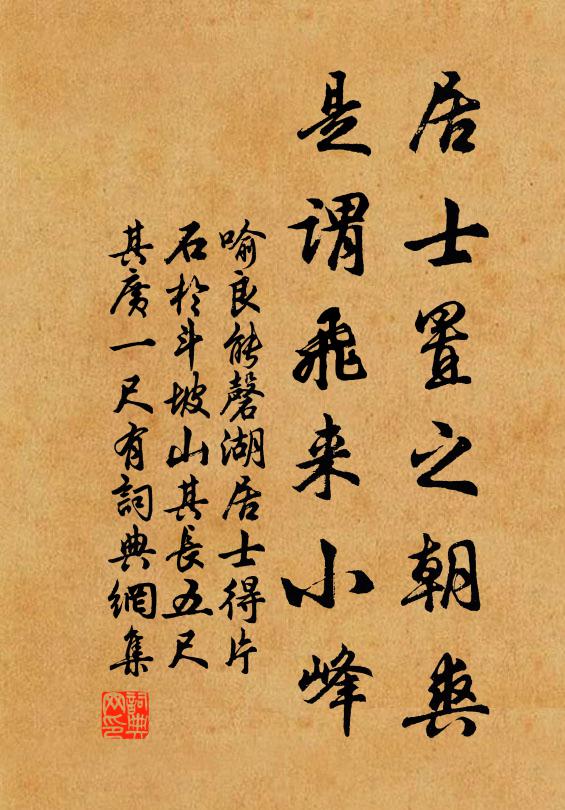 居士置之朝爽
是谓飛来小峰
喻良能磬湖居士得片
石於斗坡山其長五尺
其廣一尺有詞典網集
詞典网印